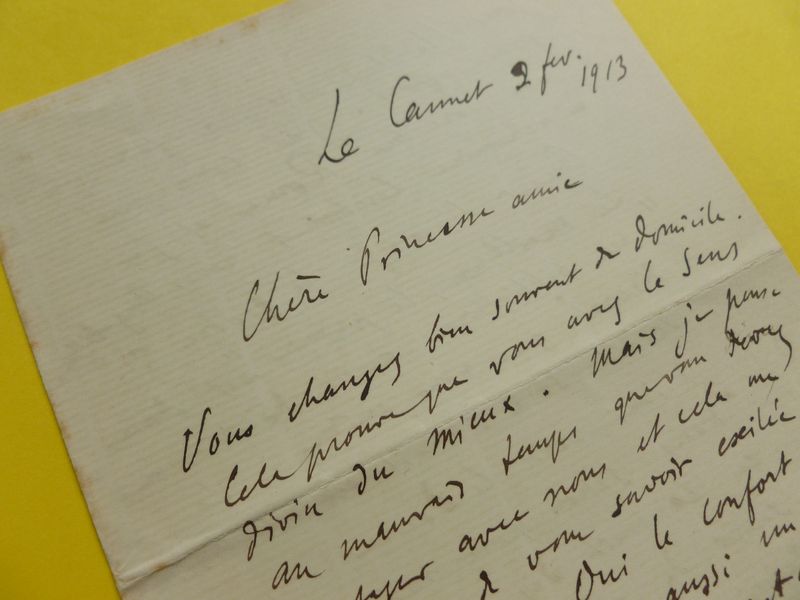 Le Cannet 2 fev. 1913
Chère Princesse amie
Vous changez bien souvent de domicile.
Cela prouve que vous avez le sens
divin du mieux. Mais je pense
au mauvais temps que vous devez
avec nous et cela me
de vous savoir exilée
Oui le confort
aussi un